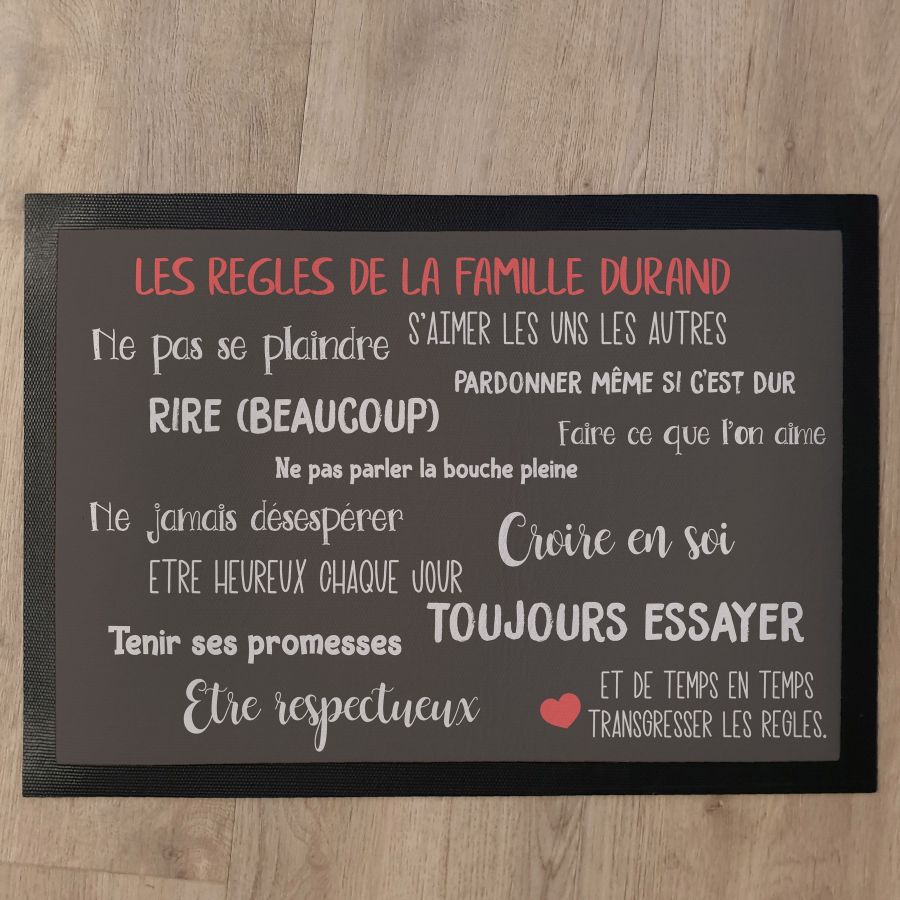 LES REGLES DE LA FAMILLE DURAND
Ne pas se plaindre
S'AIMER LES UNS LES AUTRES
PARDONNER MÊME SI C'EST DUR
RIRE (BEAUCOUP)
Faire ce que l'on aime
Ne pas parler la bouche pleine
Ne jamais désespérer
Croire en soi
ETRE HEUREUX CHAQUE JOUR
TOUJOURS ESSAYER
Tenir ses promesses
Etre respectueux
ET DE TEMPS EN TEMPS
TRANSGRESSER LES REGLES.